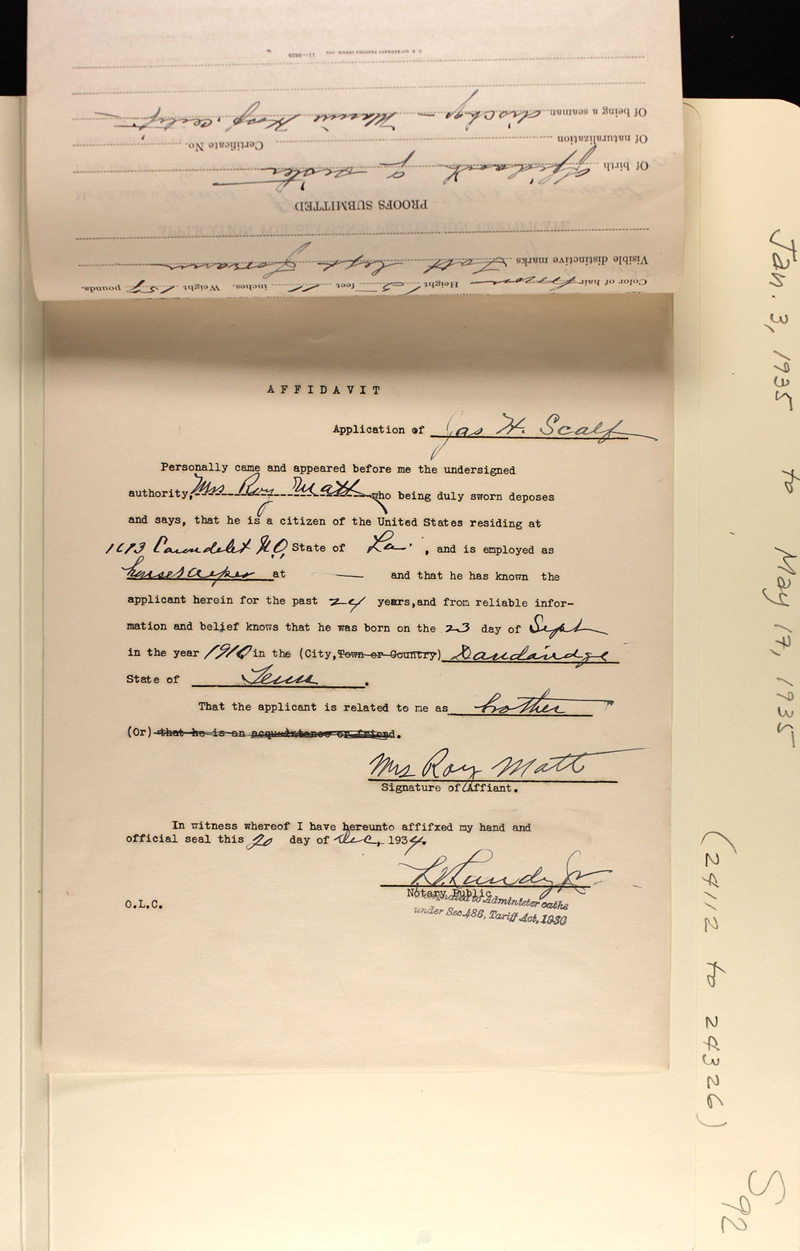 Color of hair Brown Height 5 feet 11 inches. Weight 157 pounds.
Visible distinctive marks Tatt left forearm
PROOFS SUBMITTED
Of birth Affidavit of sister
Of naturalization Certificate No.
Of being a seaman discharge - Certif
AFFIDAVIT
Application of Jas H. Scalf
Personally came and appeared before me the undersigned
authority, Mrs Roy Matt who being duly sworn deposes
and says, that he is a citizen of the United States residing at
1613 Carondelet N.O. State of La. , and is employed as
housekeeper at — and that he has known the
applicant herein for the past 24 years,and from reliable infor-
mation and belief knows that he was born on the 23 day of Sept
in the year 1910 in the (City,Town or Country) Dandridge
State of Tenn .
That the applicant is related to me as brother
(Or) that he is an acquaintance or friend.
Mrs Roy Matt
Signature of Affiant.
In witness whereof I have hereunto affifxed my hand and
official seal this 20 day of Dec, 1934.
Notary Public
to Administer oaths
under Sec. 486, Tariff Act, 1930
O.L.C.
Jan. 3, 1935 to May 17, 1935
(24112 to 24326)
S92